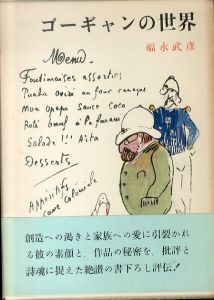 ゴーギャンの世界
福永武彦
Menu.
Foutimaises assorties
Puaha oviri au four canaques
Mon opapa sauce coco
Roti bœuf à la farani
Salade !! Aita
Desserts
Apéritifs
cave Coloniale
創造への渇きと家族への愛に引裂かれ
る彼の素顔と、作品の秘密を、批評と
詩魂に捉えた絶讃の書下ろし評伝!